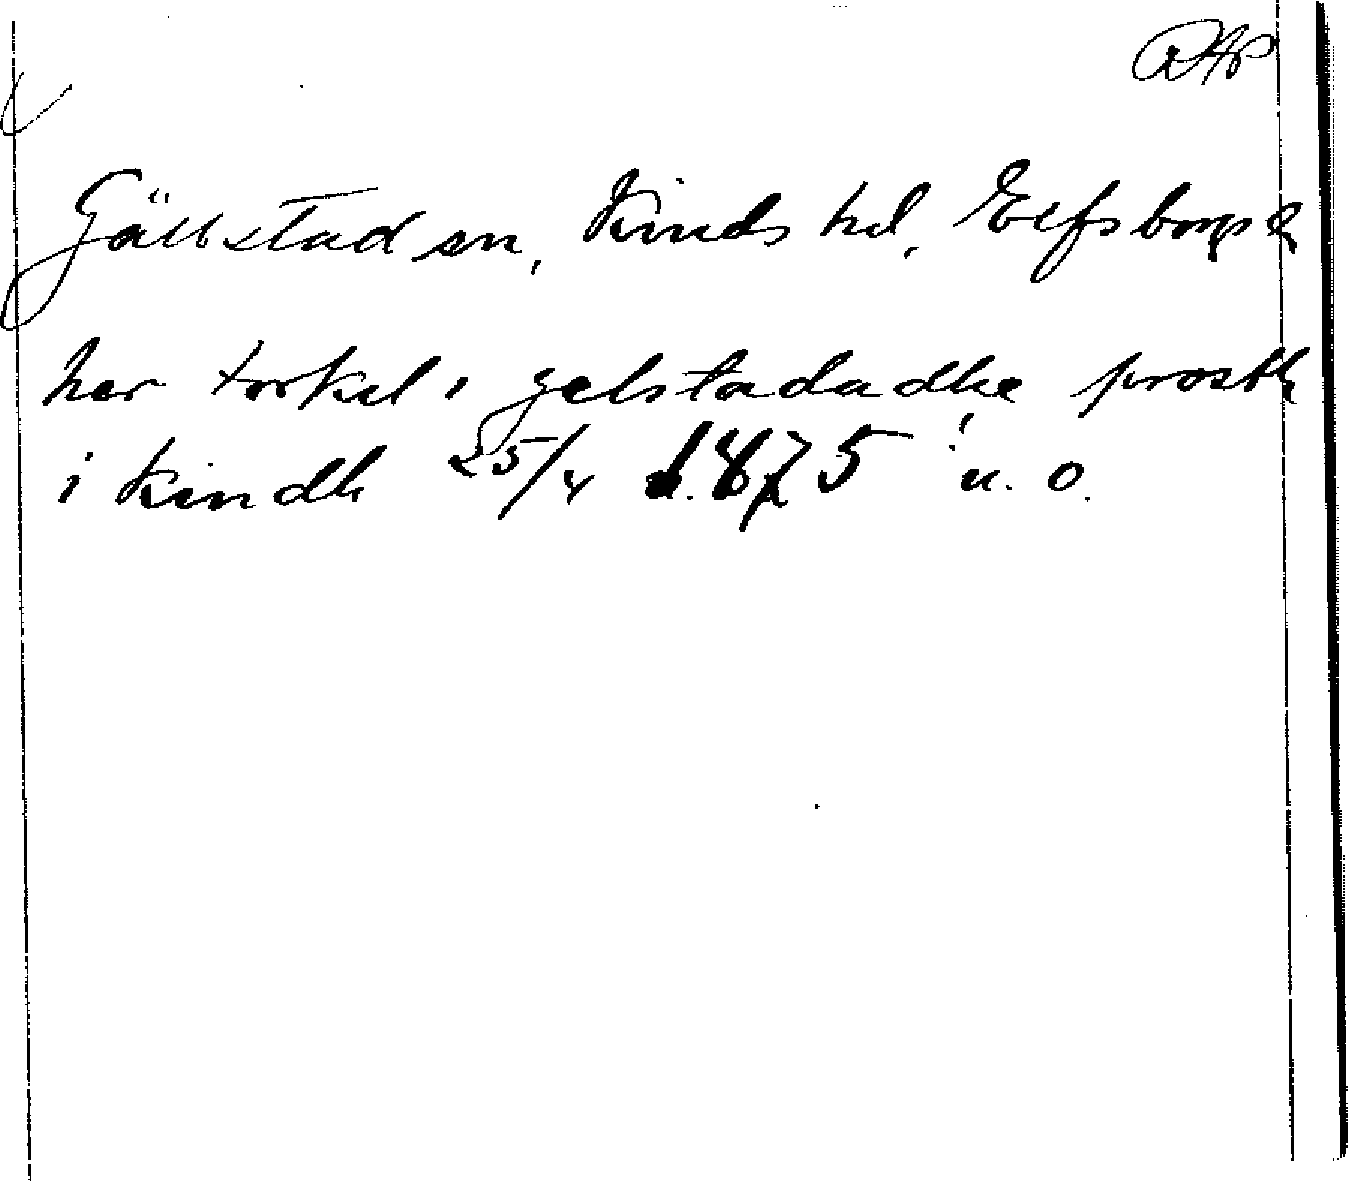 RAP
Gällstad sn, Kinds hd, Elfsborgs l
her torkel i gelstadadhe prosth
i kindh 25/4 1475 u. o.